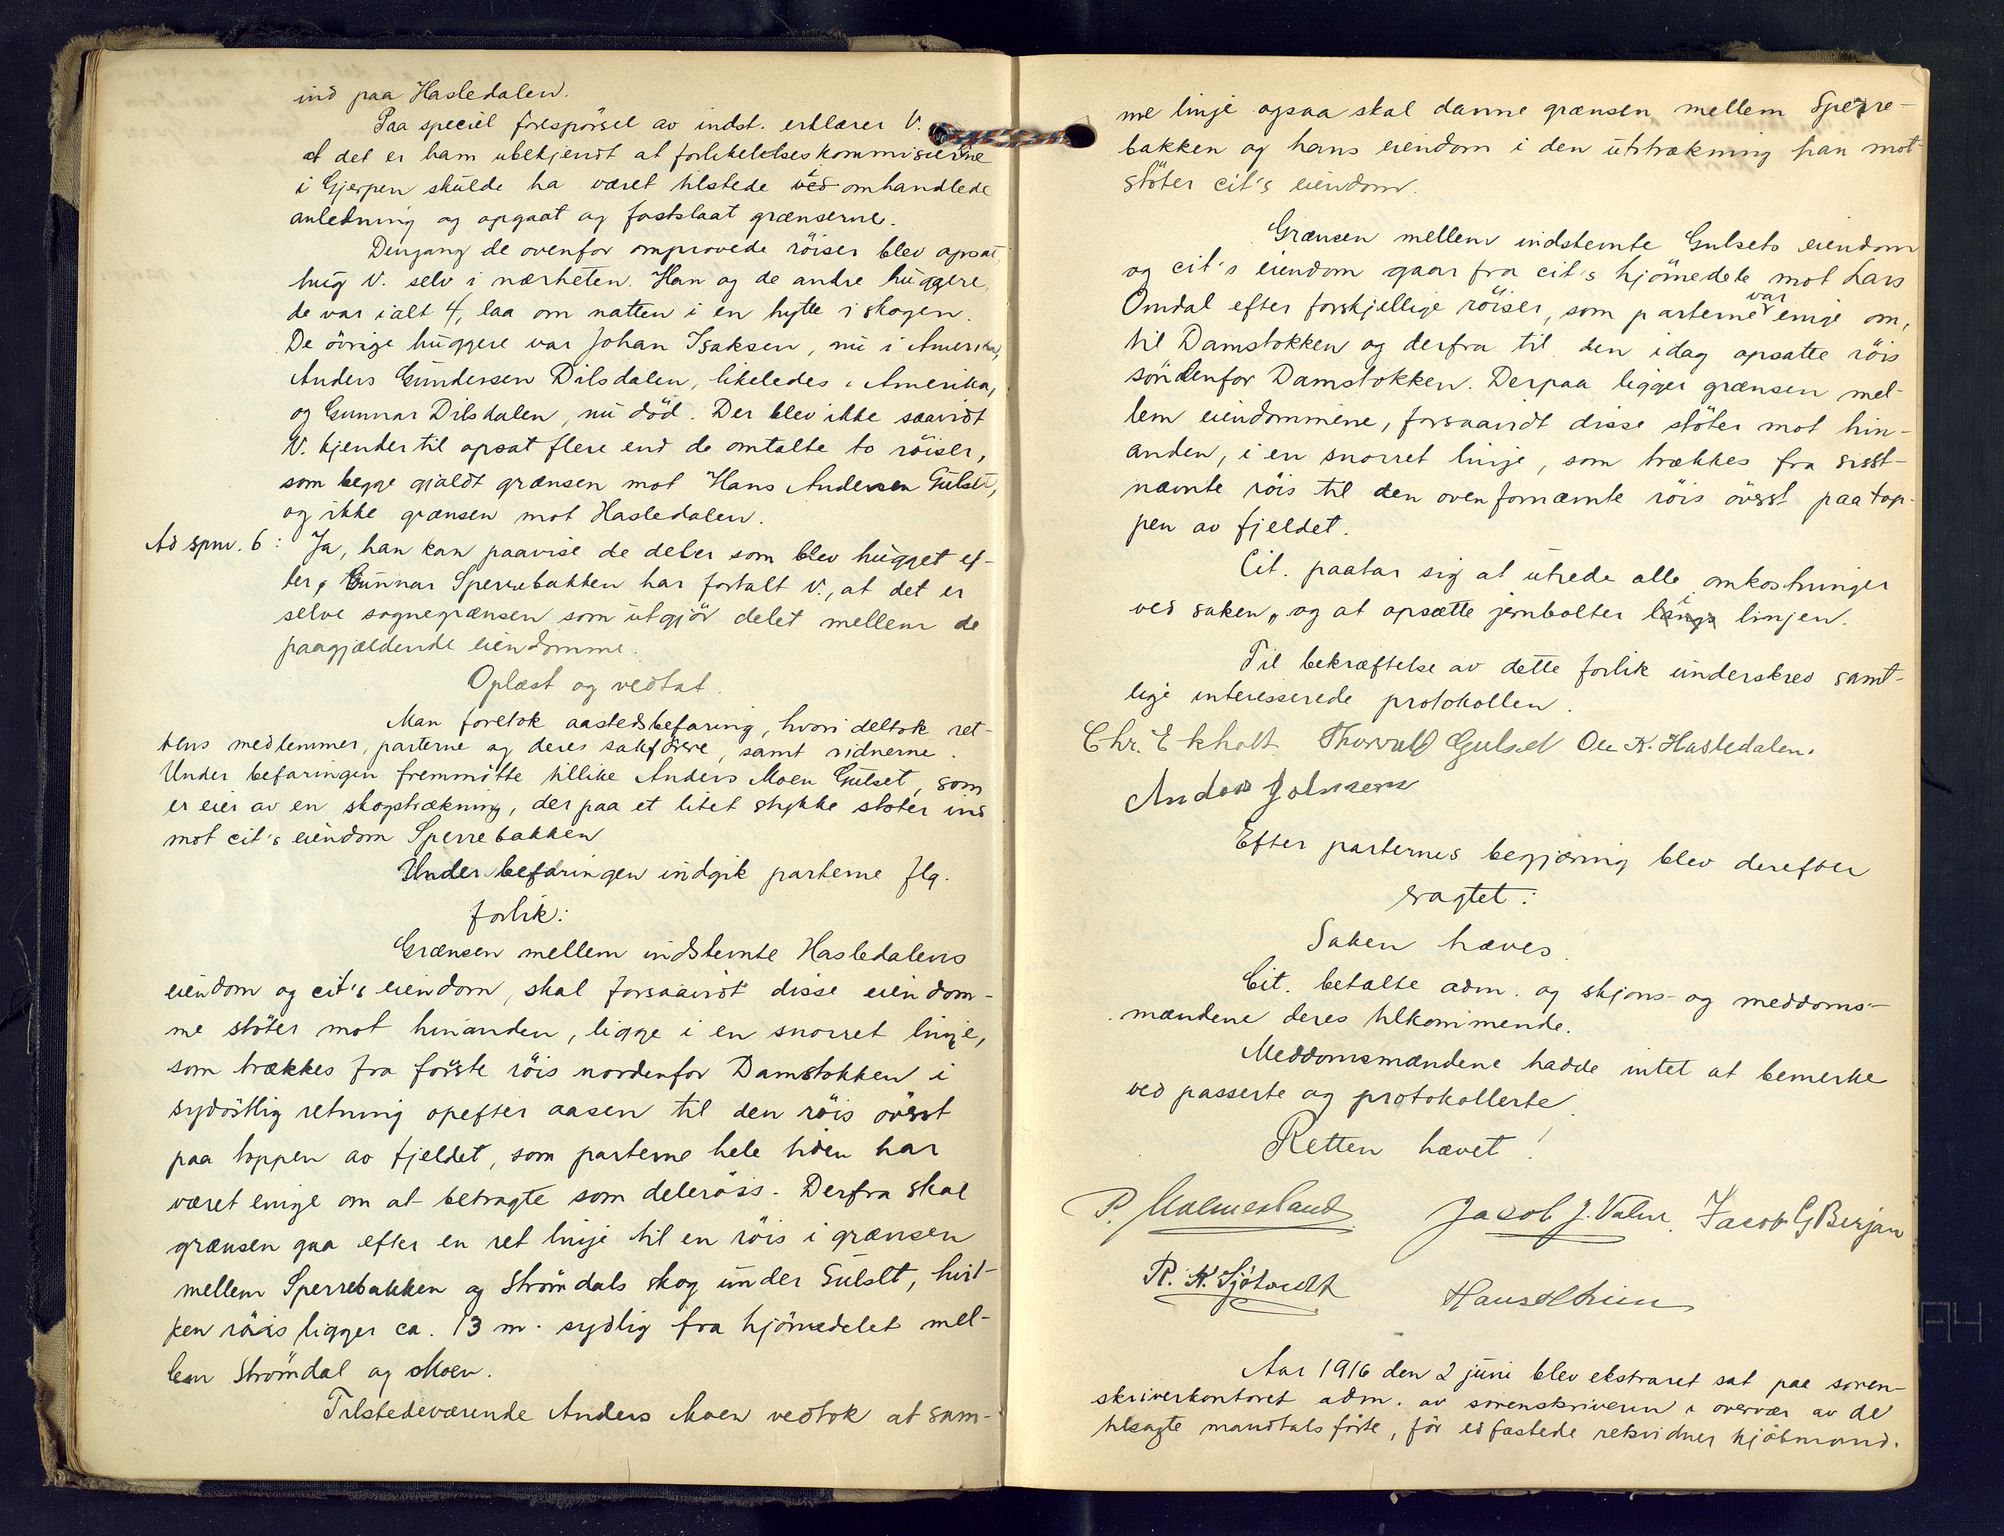 ind paa Hasledalen.
Paa speciel forespörsel av indst. erklærer V.
at det er ham ubekjendt at forlikelseskommissionen
i Gjerpen skulde ha været tilstede ved omhandlede
anledning og opgaat og fastslaat grænserne.
Dengang de ovenfor omprovede röiser blev opsat,
hug V. selv i nærheten. Han og de andre huggere,
de var ialt 4, laa om natten i en hytte i skogen.
De övrige huggere var Johan Isaksen, nu i Amerika,
Anders Gundersen Dilsdalen, likeledes i Amerika,
og Gunnar Dilsdalen, nu död. Der blev ikke saavidt
V. kjender til opsat flere end de omtalte to röiser,
som begge gjaldt grænsen mot Hans Andersen Gulset,
og ikke grænsen mot Hasledalen.
Ad spm. 6: Ja, han kan paavise de deler som blev hugget ef-
ter, Gunnar Sperrebakken har fortalt V., at det er
selve sognegrænsen som utgjör delet mellem de
paagjældende eiendomme.
Oplæst og vedtat.
Man foretok aastedsbefaring, hvori deltok ret-
tens medlemmer, parterne og deres sakförere, samt vidnerne.
Under befaringen fremmötte tillike Anders Moen Gulset, som
er eier av en skogstrækning, der paa et litet stykke stöter ind
mot cit's eiendom Sperrebakken
Under befaringen indgik parterne flg.
forlik:
Grænsen mellem indstemte Hasledalens
eiendom og cit's eiendom, skal forsaavidt disse eiendom-
me stöter mot hinanden, ligge i en snorret linje,
som trækkes fra förste röis nordenfor Damstokken i
sydöstlig retning opefter aasen til den röis överst
paa toppen av fjeldet, som parterne hele tiden har
været enige om at betragte som deleröis. Derfra skal
grænsen gaa efter en ret linje til en röis i grænsen
mellem Sperrebakken og Strömdals skog under Gulset, hvil-
ken röis ligger ca. 13 m. sydlig fra hjörnedelet mel-
lem Strömdal og Moen.
Tilstedeværende Anders Moen vedtok at sam-
me linje ogsaa skal danne grænsen mellem Sperre-
bakken og hans eiendom i den utstrækning han mot-
stöter cit's eiendom.
Grænsen mellem indstemte Gulsets eiendom
og cit's eiendom gaar fra cit's hjörnedele mot Lars
Omdal efter forskjellige röiser, som parterne var enige om,
til Damstokken og derfra til den idag opsatte röis
söndenfor Damstokken. Derpaa ligger grænsen mel-
lem eiendommene, forsaavidt disse stöter mot hin-
anden, i en snorret linje, som trækkes fra sisst-
nævnte röis til den ovenfornævnte röis översst paa top-
pen av fjeldet.
Cit. paatar sig at utrede alle omkostninger
ved saken, og at opsætte jernbolter i linjen.
Til bekræftelse av dette forlik underskrev samt-
lige interesserede protokollen.
Chr. Ekholt Thorvald Gulset Ole K. Hasledalen.
Anders Johnsen
Efter parternes begjæring blev derefter
sagtet:
Saken hæves.
Cit. betalte adm. og skjöns- og meddoms-
mændene deres tilkommende.
Meddomsmændene hadde intet at bemerke
ved passerte og protokollerte.
Retten hævet!
P. Malmersland Jacob J. Valen. Jacob G Berjan
R. K. Sjötvedt
Aar 1916 den 2 juni blev ekstraret sat paa soren-
skriverkontoret adm. av sorenskriveren i overvær av de
tilsagte mandtalsförte, för edfæstede retsvidner kjöbmænd.